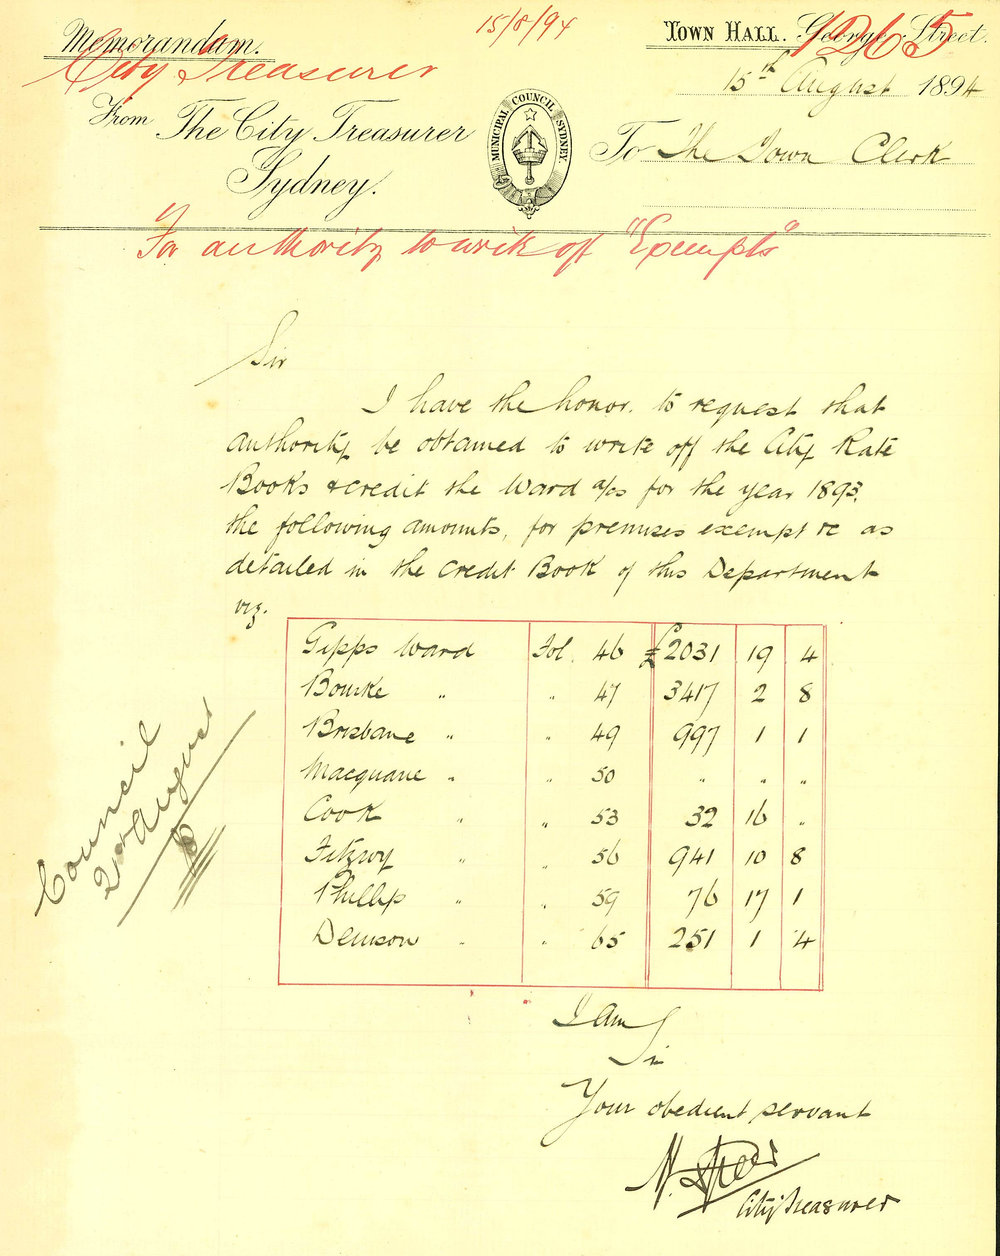 15/8/94
Memorandum.
TOWN HALL. George Street.
1265
City Treasurer
15th August 1894
From The City Treasurer
Sydney.
MUNICIPAL COUNCIL SYDNEY.
To The Town Clerk
For authority to write off "Exempts"
Sir
I have the honor. to request that
authority be obtained to write off the City Rate
Books & credit the Ward a/cs for the year 1893.
the following amounts, for premises exempt &c as
detailed in the Credit Book of this Department
viz.
Gipps Ward Fol. 46 £2031 19 4
Bourke " " 47 3417 2 8
Brisbane " " 49 997 1 1
Macquarie " " 50 " " "
Cook " " 53 32 16 "
Fitzroy " " 56 941 10 8
Phillip " " 59 76 17 1
Denison " " 65 251 1 4
Council
21 August
I am
Sir
Your obedient servant
City Treasurer